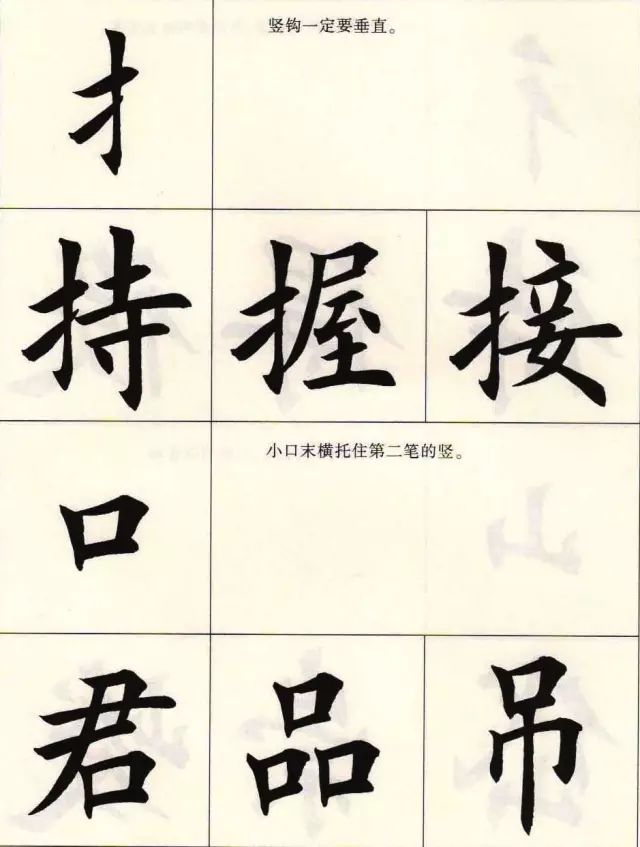 竖钩一定要垂直。
扌
持 握 接
小口末横托住第二笔的竖。
口
君 品 吊